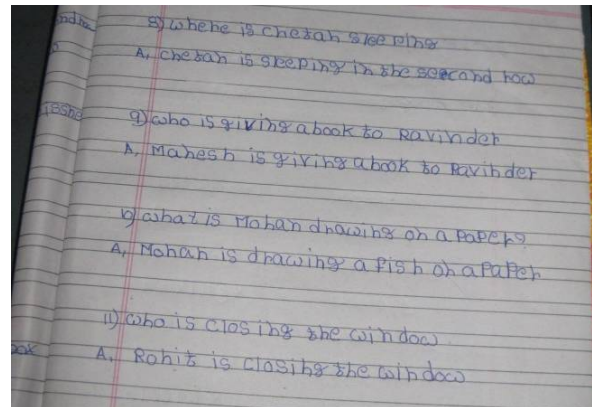 8) where is chetan sleeping
A, chetan is sleeping in the second row
9) who is giving a book to Ravinder
A, Mahesh is giving a book to Ravinder
10) what is Mohan drawing on a paper?
A, Mohan is drawing a fish on a paper
11) who is closing the window
A, Rohit is closing the window